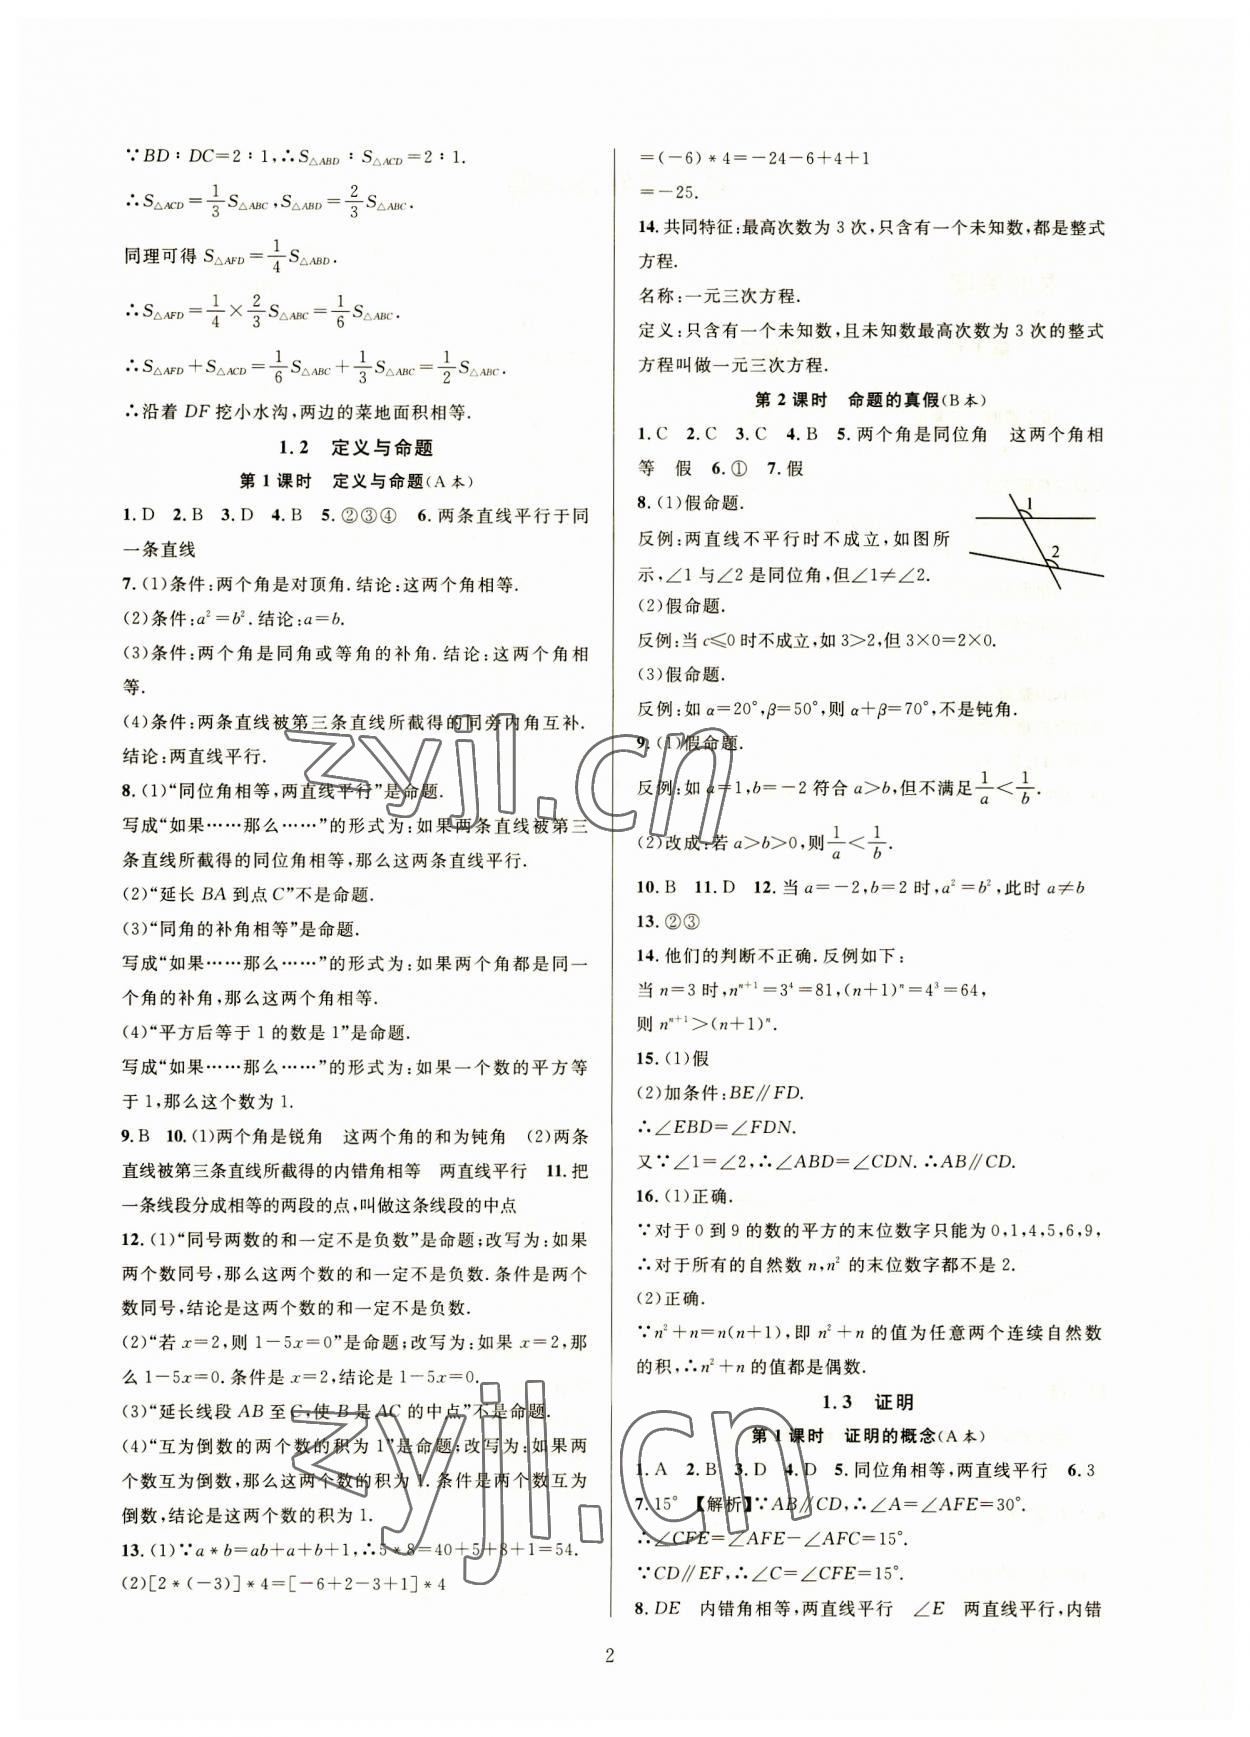 ∵BD∶DC=2∶1,∴S△ABD∶S△ACD=2∶1.
∴S△ACD=1/3 S△ABC,S△ABD=2/3 S△ABC.
同理可得 S△AFD=1/4 S△ABD.
∴S△AFD=1/4×2/3 S△ABC=1/6 S△ABC.
∴S△AFD+S△ACD=1/6 S△ABC+1/3 S△ABC=1/2 S△ABC.
∴沿着 DF 挖小水沟,两边的菜地面积相等.
1.2 定义与命题
第1课时 定义与命题(A本)
1.D 2.B 3.D 4.B 5.②③④ 6.两条直线平行于同
一条直线
7.(1)条件:两个角是对顶角.结论:这两个角相等.
(2)条件:a²=b².结论:a=b.
(3)条件:两个角是同角或等角的补角.结论:这两个角相
等.
(4)条件:两条直线被第三条直线所截得的同旁内角互补.
结论:两直线平行.
8.(1)“同位角相等,两直线平行”是命题.
写成“如果……那么……”的形式为:如果两条直线被第三
条直线所截得的同位角相等,那么这两条直线平行.
(2)“延长 BA 到点 C”不是命题.
(3)“同角的补角相等”是命题.
写成“如果……那么……”的形式为:如果两个角都是同一
个角的补角,那么这两个角相等.
(4)“平方后等于 1 的数是 1”是命题.
写成“如果……那么……”的形式为:如果一个数的平方等
于 1,那么这个数为 1.
9.B 10.(1)两个角是锐角 这两个角的和为钝角 (2)两条
直线被第三条直线所截得的内错角相等 两直线平行 11.把
一条线段分成相等的两段的点,叫做这条线段的中点
12.(1)“同号两数的和一定不是负数”是命题;改写为:如果
两个数同号,那么这两个数的和一定不是负数.条件是两个
数同号,结论是这两个数的和一定不是负数.
(2)“若 x=2,则 1-5x=0”是命题;改写为:如果 x=2,那
么 1-5x=0.条件是 x=2,结论是 1-5x=0.
(3)“延长线段 AB 至 C,使 B 是 AC 的中点”不是命题.
(4)“互为倒数的两个数的积为 1”是命题;改写为:如果两
个数互为倒数,那么这两个数的积为 1.条件是两个数互为
倒数,结论是这两个数的积为 1.
13.(1)∵a*b=ab+a+b+1,∴5*8=40+5+8+1=54.
(2)[2*(-3)]*4=[-6+2-3+1]*4
=(-6)*4=-24-6+4+1
=-25.
14.共同特征:最高次数为 3 次,只含有一个未知数,都是整式
方程.
名称:一元三次方程.
定义:只含有一个未知数,且未知数最高次数为 3 次的整式
方程叫做一元三次方程.
第2课时 命题的真假(B本)
1.C 2.C 3.C 4.B 5.两个角是同位角 这两个角相
等 假 6.① 7.假
8.(1)假命题.
反例:两直线不平行时不成立,如图所
示,∠1 与∠2 是同位角,但∠1≠∠2.
1
2
(2)假命题.
反例:当 c≤0 时不成立,如 3>2,但 3×0=2×0.
(3)假命题.
反例:如 α=20°,β=50°,则 α+β=70°,不是钝角.
9.(1)假命题.
反例:如 a=1,b=-2 符合 a>b,但不满足 1/a<1/b.
(2)改成:若 a>b>0,则 1/a<1/b.
10.B 11.D 12.当 a=-2,b=2 时,a²=b²,此时 a≠b
13.②③
14.他们的判断不正确.反例如下:
当 n=3 时,nⁿ⁺¹=3⁴=81,(n+1)ⁿ=4³=64,
则 nⁿ⁺¹>(n+1)ⁿ.
15.(1)假
(2)加条件:BE∥FD.
∴∠EBD=∠FDN.
又∵∠1=∠2,∴∠ABD=∠CDN.∴AB∥CD.
16.(1)正确.
∵对于 0 到 9 的数的平方的末位数字只能为 0,1,4,5,6,9,
∴对于所有的自然数 n,n² 的末位数字都不是 2.
(2)正确.
∵n²+n=n(n+1),即 n²+n 的值为任意两个连续自然数
的积,∴n²+n 的值都是偶数.
1.3 证明
第1课时 证明的概念(A本)
1.A 2.B 3.D 4.D 5.同位角相等,两直线平行 6.3
7.15° 【解析】∵AB∥CD,∴∠A=∠AFE=30°.
∴∠CFE=∠AFE-∠AFC=15°.
∵CD∥EF,∴∠C=∠CFE=15°.
8.DE 内错角相等,两直线平行 ∠E 两直线平行,内错
2
zyjl.cn
zyjl.cn